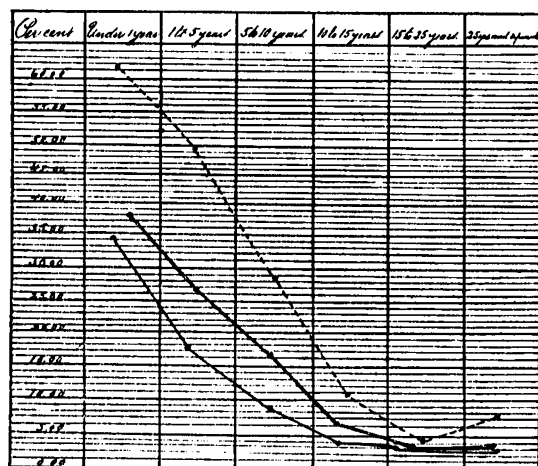 Per cent Under 1 year 1 to 5 years 5 to 10 years 10 to 15 years 15 to 25 years 25 years
60.00
55.00
50.00
45.00
40.00
35.00
30.00
25.00
20.00
15.00
10.00
5.00
0.00